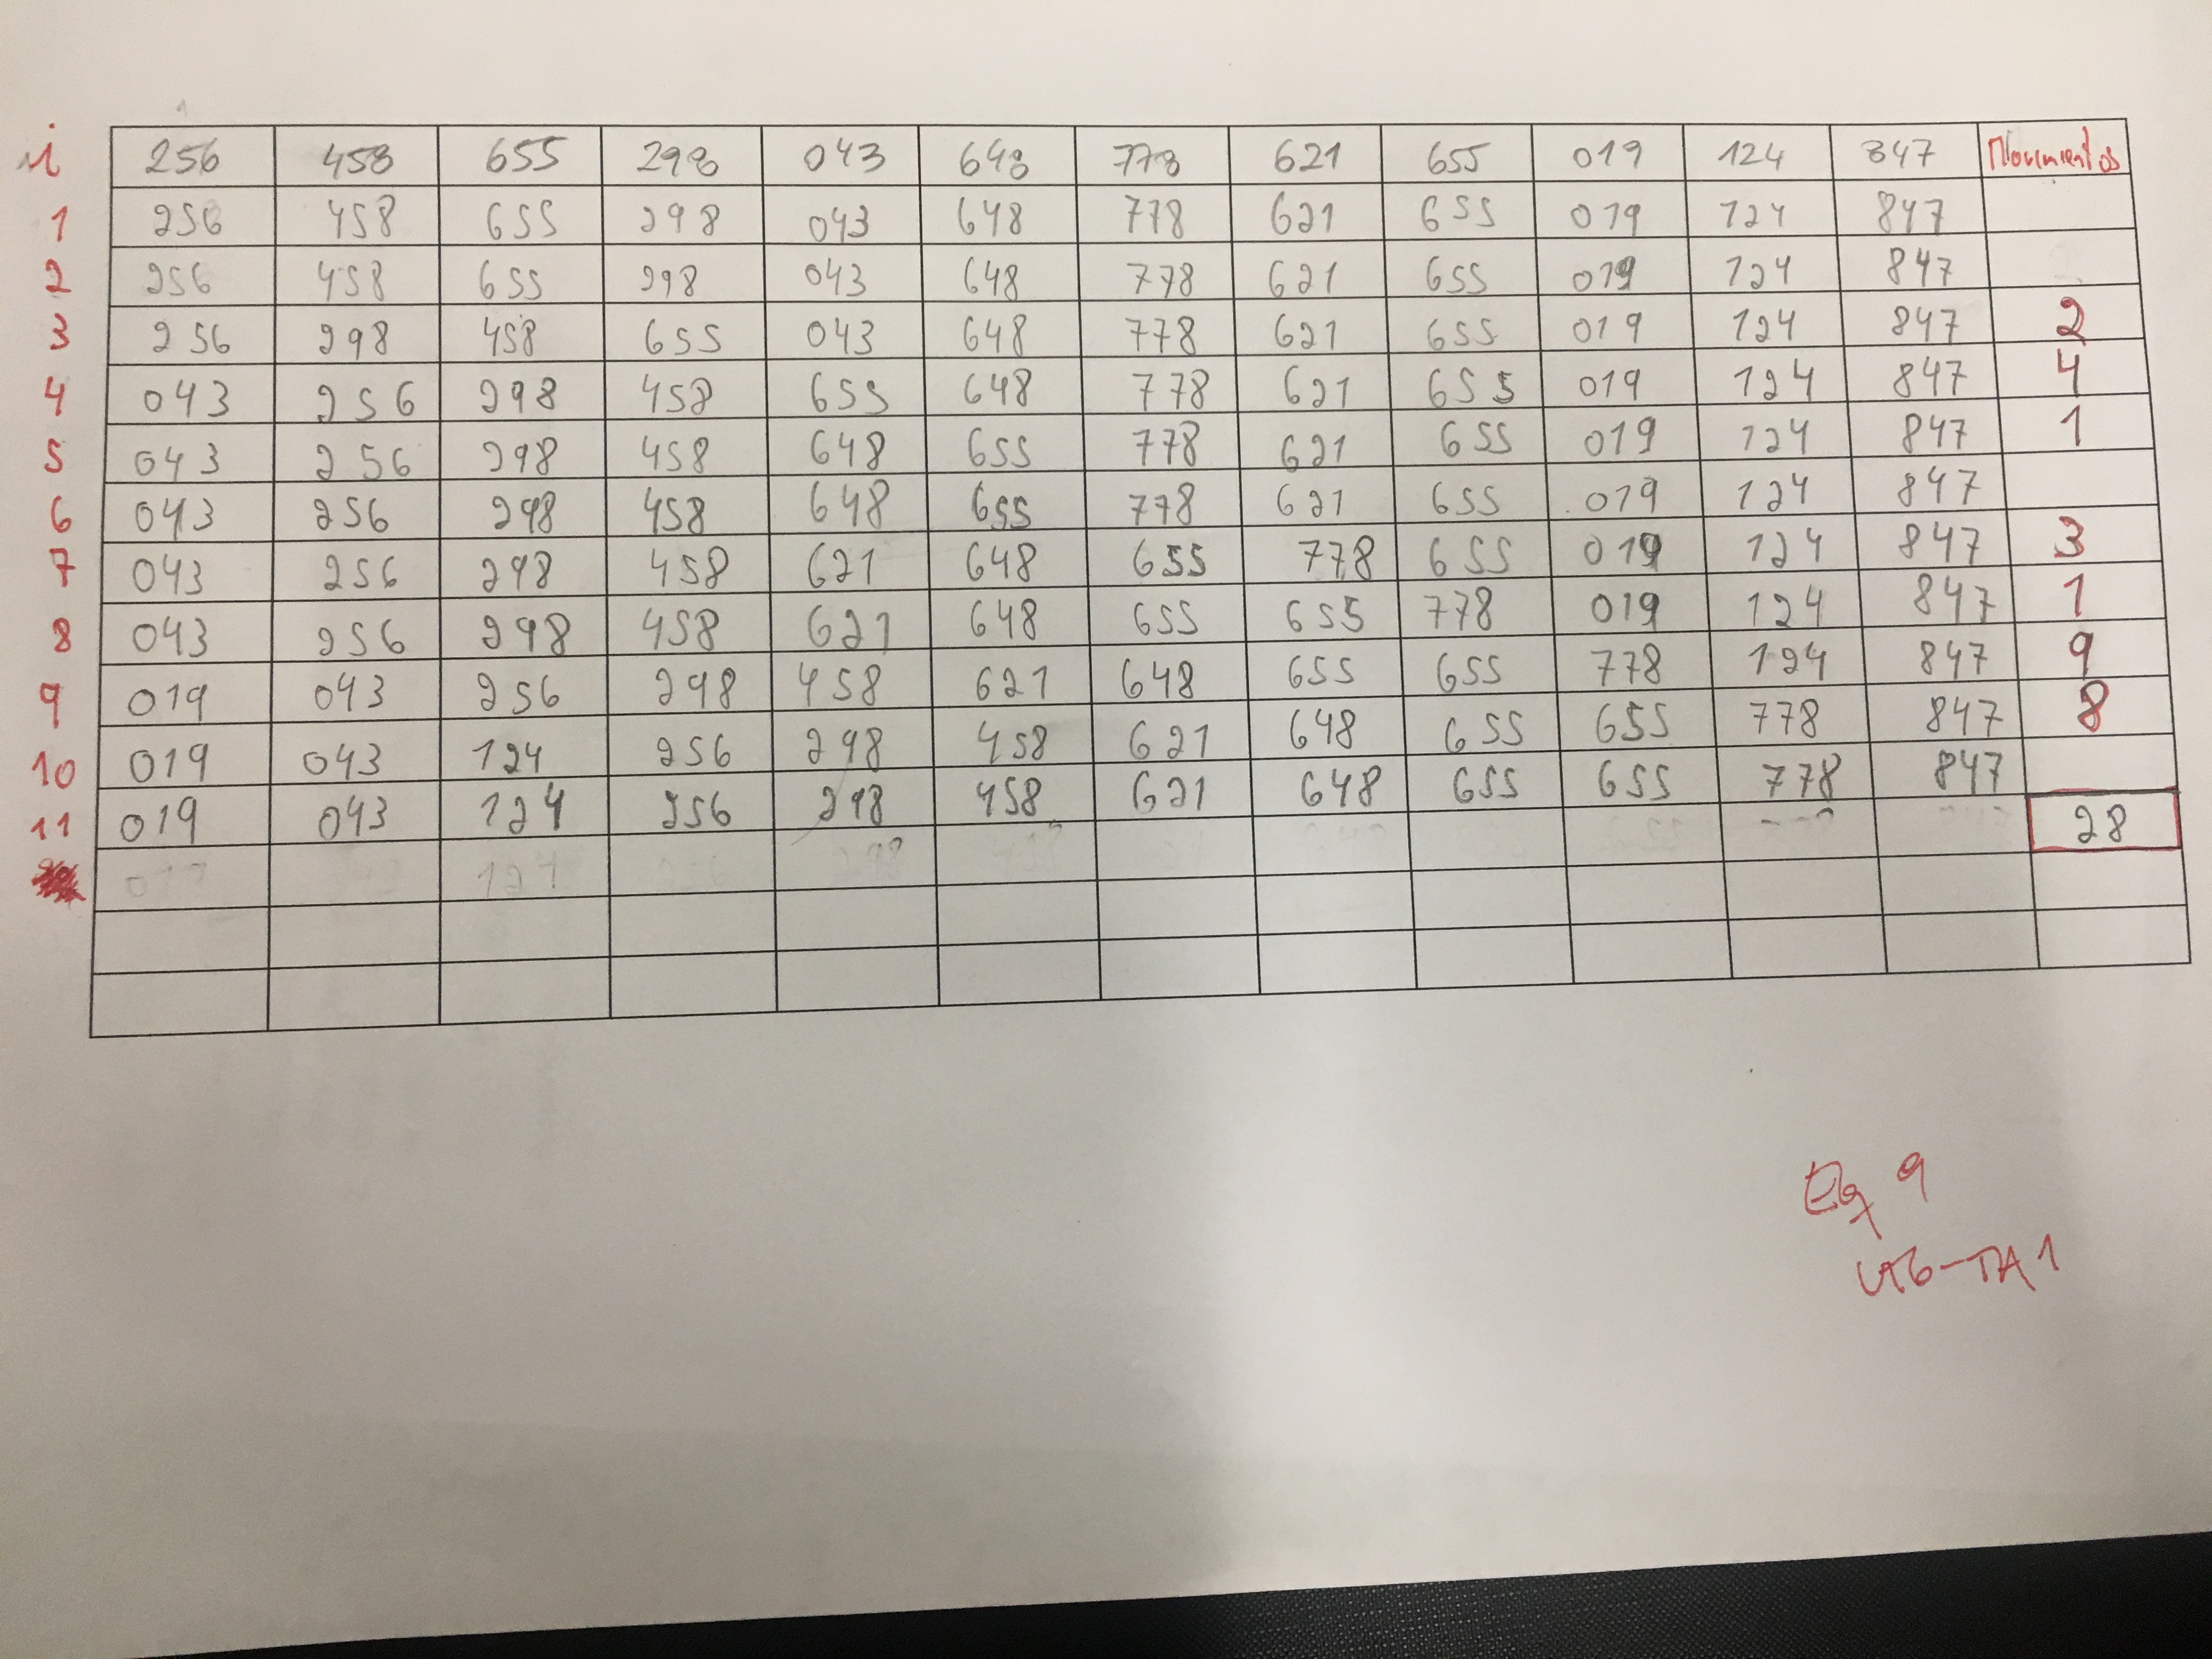 i 256 458 655 298 043 648 778 621 655 019 124 847 Movimientos
1 256 458 655 298 043 648 778 621 655 019 124 847
2 256 458 655 298 043 648 778 621 655 019 124 847
3 256 298 458 655 043 648 778 621 655 019 124 847 2
4 043 256 298 458 655 648 778 621 655 019 124 847 4
5 043 256 298 458 648 655 778 621 655 019 124 847 1
6 043 256 298 458 648 655 778 621 655 019 124 847
7 043 256 298 458 621 648 655 778 655 019 124 847 3
8 043 256 298 458 621 648 655 655 778 019 124 847 1
9 019 043 256 298 458 621 648 655 655 778 124 847 9
10 019 043 124 256 298 458 621 648 655 655 778 847 8
11 019 043 124 256 298 458 621 648 655 655 778 847
28
Eq 9
UT6-TA1